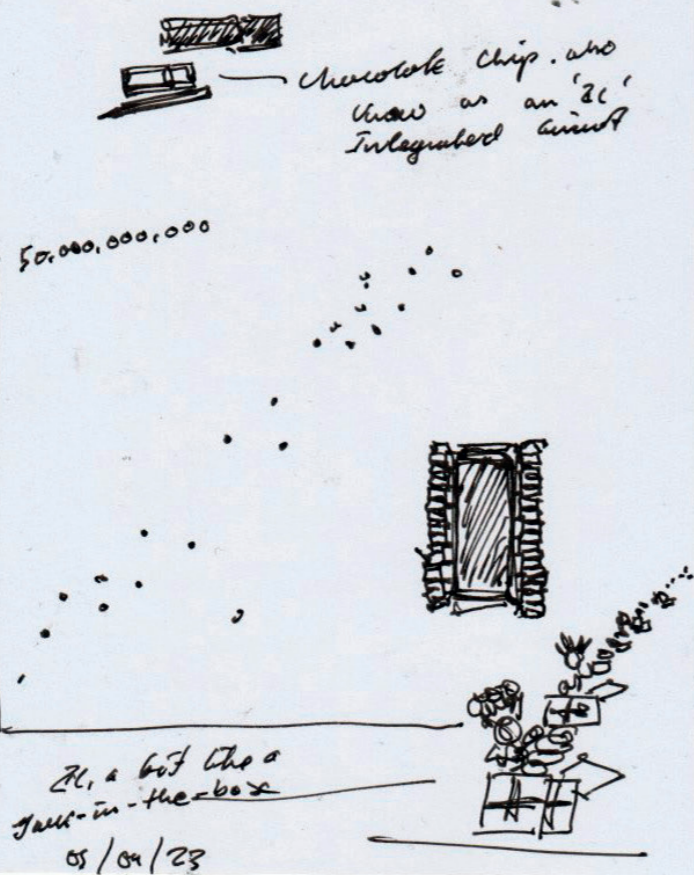 chocolate chip. also
know as an 'IC'
Integrated Circuit
50,000,000,000
IC, a bit like a
Jack-in-the-box
05/04/23